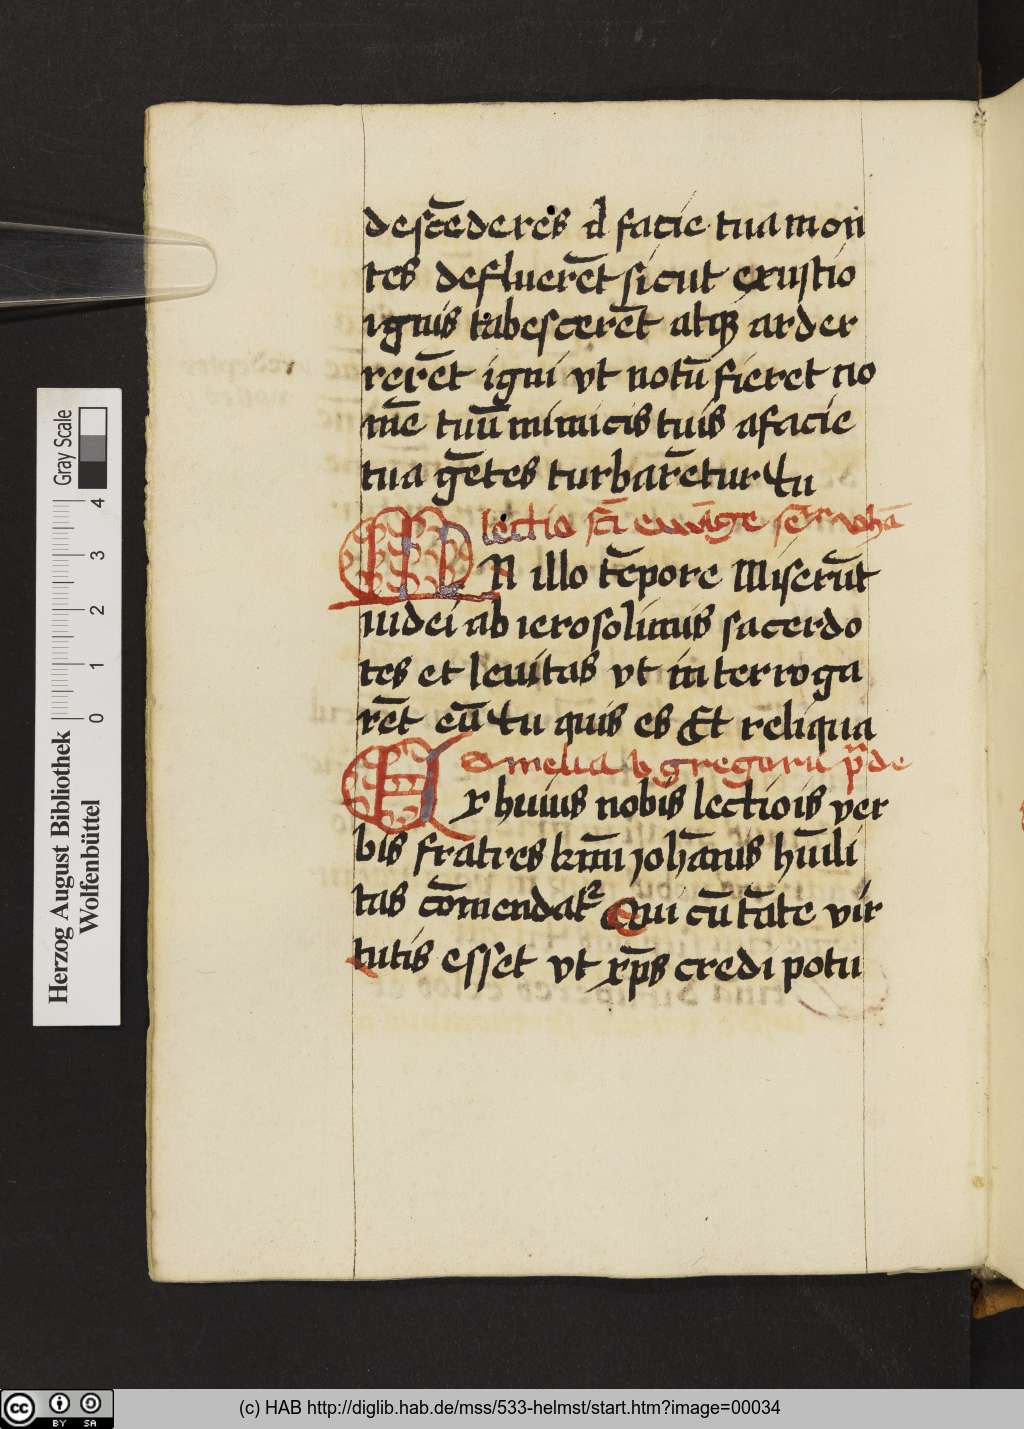 desce̅deres a̅ facie tua mon
tes defluere̅t sicut exustio
ignis tabescere̅t atqꝫ arder
rere̅t igni vt notu̅ fieret no
me̅ tuu̅ inimicis tuis a facie
tua ge̅tes turbare̅tur tu
lectio sc̅i ewa̅ge
N illo te̅pore Miseru̅t
iudei ab ierosolimis sacerdo
tes et leuitas vt interroga
re̅t eu̅ tu quis es Et reliqua
Omelia b gregorii
E x huius nobis lectiois ver
bis fratres kr̅mi joha̅nis hu̅ili
tas co̅mendat² Qui cu̅ ta̅te vir
tutis esset vt xp̅s credi potu
Gray Scale
4
3
2
1
0
Herzog August Bibliothek
Wolfenbüttel
cc BY SA
(c) HAB http://diglib.hab.de/mss/533-helmst/start.htm?image=00034